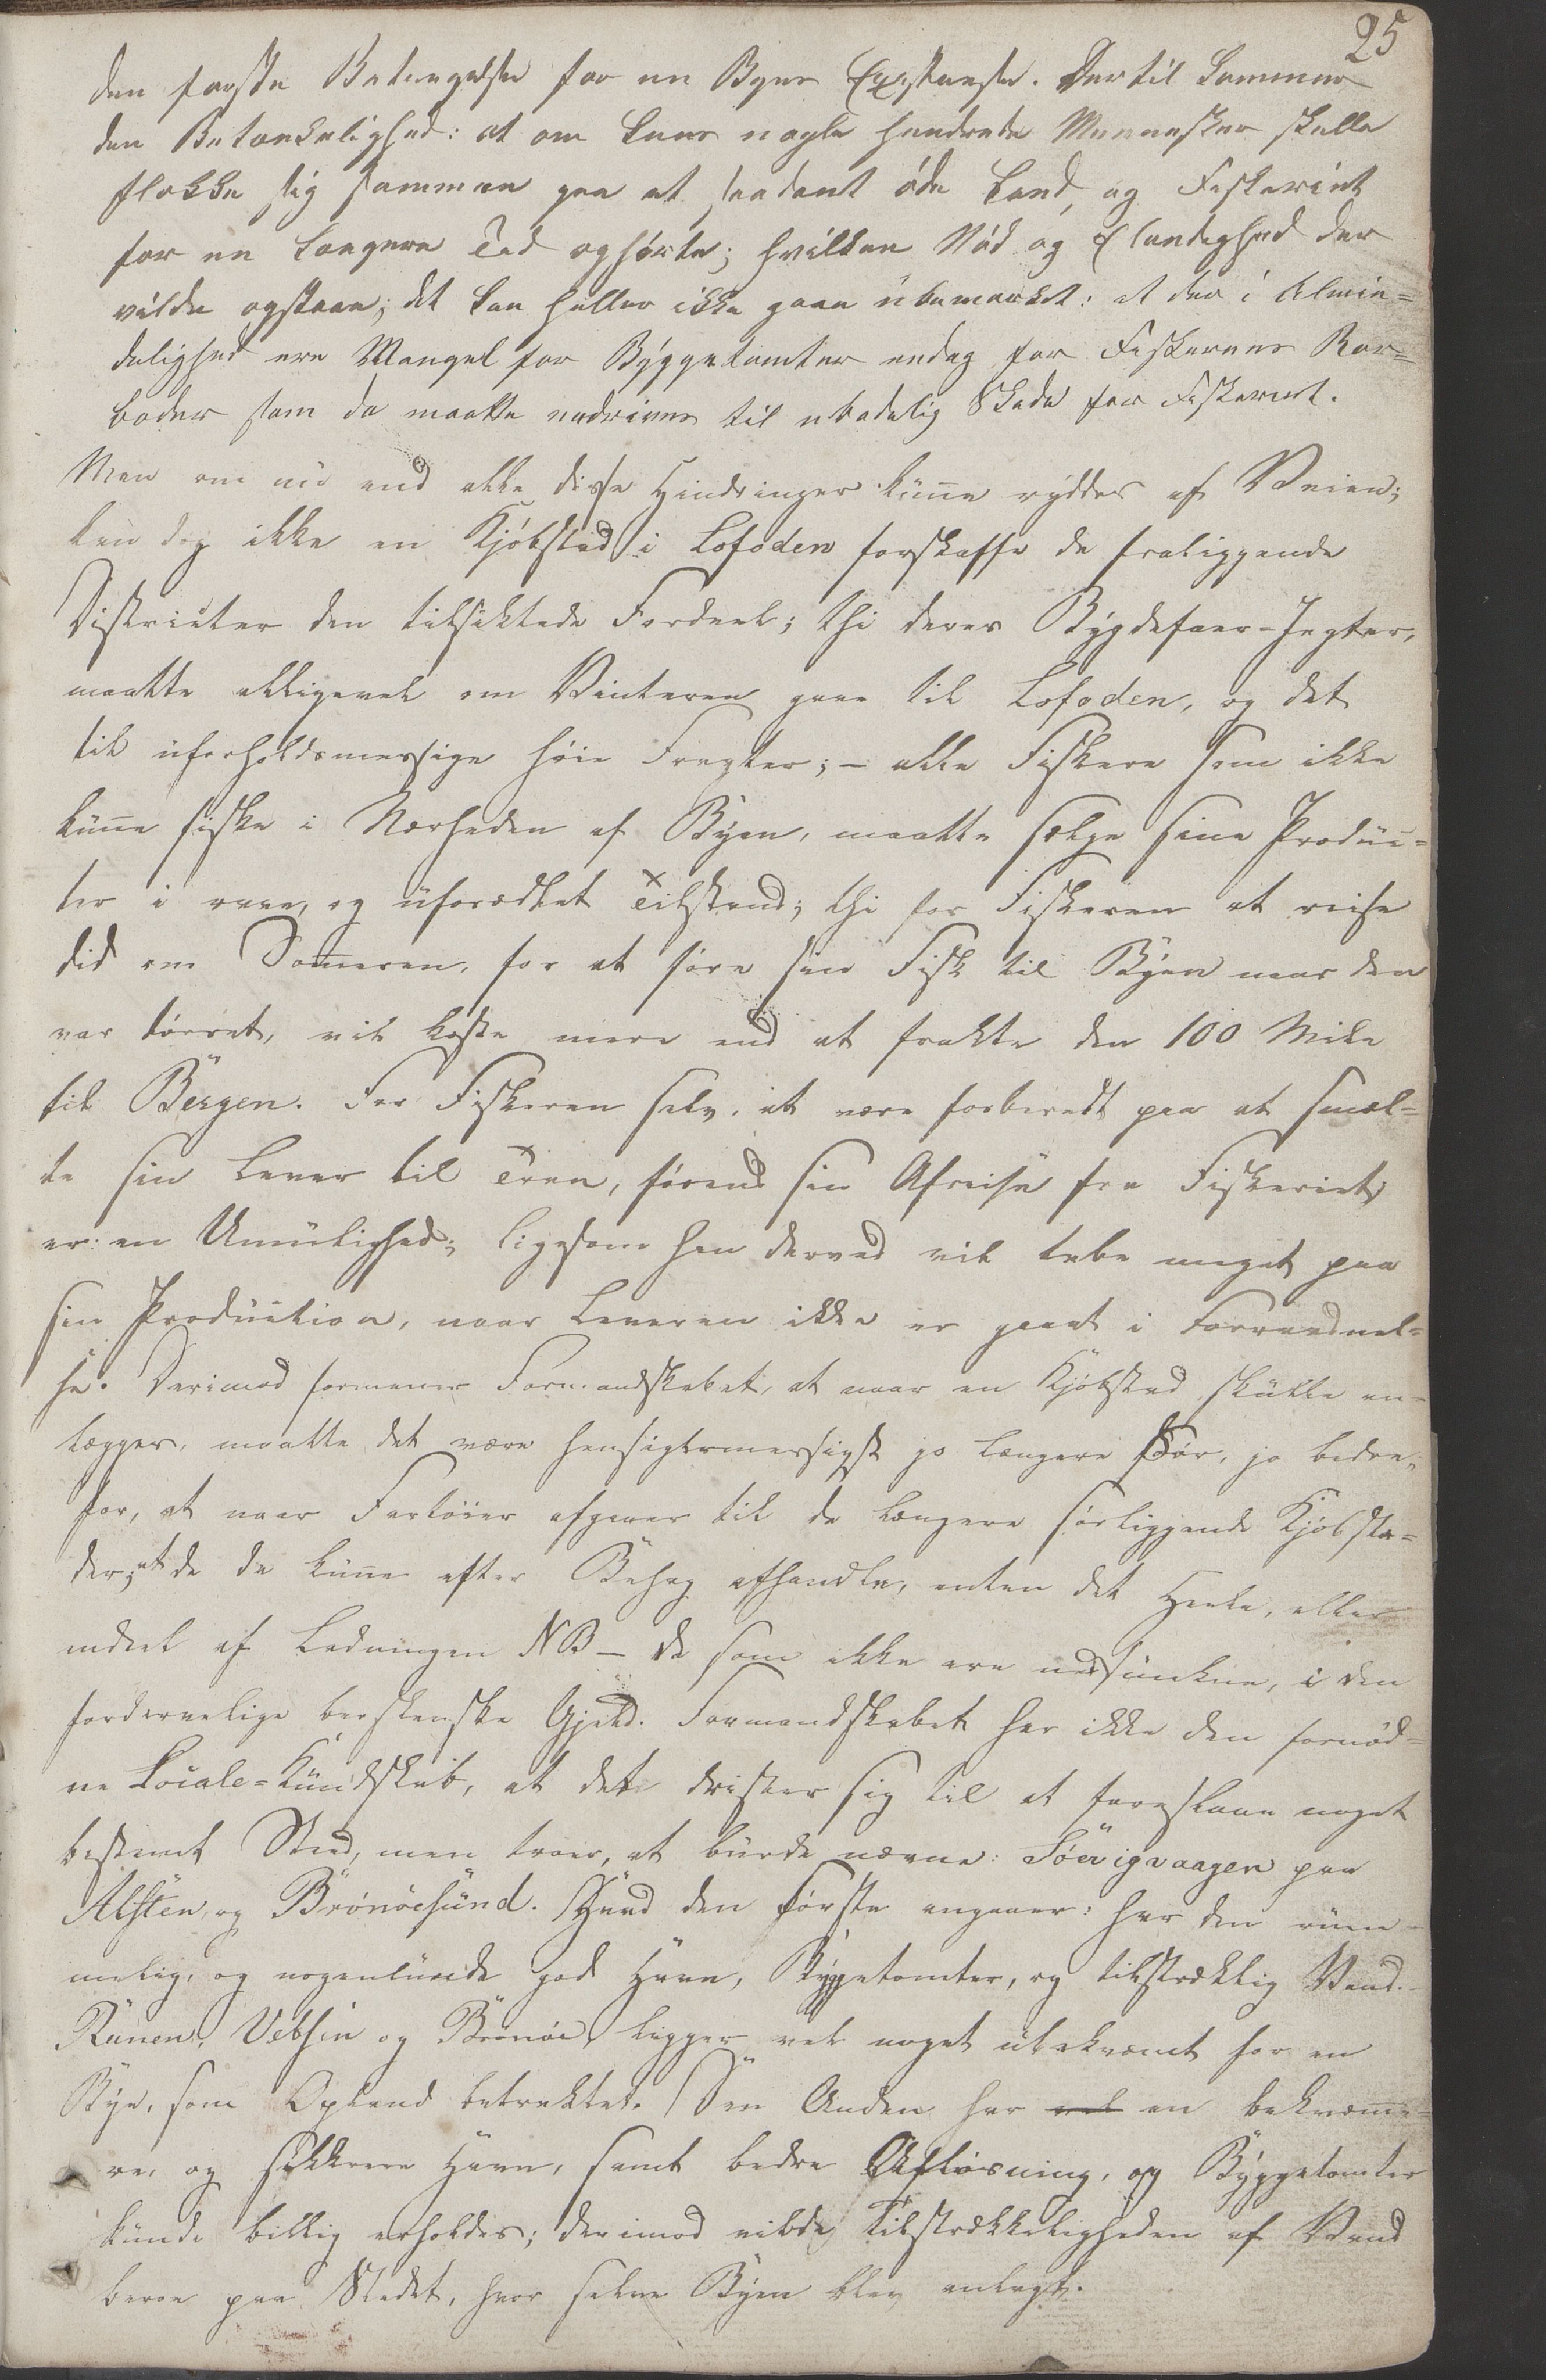 25
den første Betingelse for en Byes Existense. Dertil kommer
den Betænkelighed: at om kuns nogle hundrede Mennesker skulle
flokke sig sammen paa et saadant øde Land, og Fiskeriet
for en længere Tid ophørte; hvilken Nød og Elendighed der
vilde opstaae; det kan heller ikke gaae ubemærket: at der i Almin=
delighed ere Mangel for Byggetomter endog for Fiskernes Ror=
boder som da maatte nedrives til ubodelig Skade for Fiskeriet.
Men om nu end alle disse Hindringer kunne ryddes af Veien;
kan dog ikke en Kjøbstad i Lofoden forskaffe de fraliggende
Districter den tilsiktede Fordeel; thi deres Bygdefaer=Jegter,
maatte alligevel om Vinteren gaae til Lofoden, og det
til uforholdsmessige høie Fragter; – alle Fiskere som ikke
kunne fiske i Nærheden af Byen, maatte sælge sine Produc=
ter i raae, og uforædlet Tilstand; thi for Fiskeren at reise
did om Sommeren, for at føre sin Fisk til Byen naar den
var tørret, vil koste mere end at frakte den 100 Mile
til Bergen. For Fiskeren selv, at være forberedt paa at smel=
te sin Lever til Tran, førend sin Afreise fra Fiskeriet,
er: en Umulighed; ligesom han derved vil tabe meget paa
sin Production, naar Leveren ikke er gaaet i Forraadnel=
se. Derimod formener Formandskabet, at naar en Kjøbstad skulle an=
lægges, maatte det være hensigtsmessigst jo længere Sør, jo bedre;
for, at naar Fartøier afgaaer til de længere sørliggende Kjøbstæ=
der; at de da kunne efter Behag afhandle, enten det Heele, eller
endeel af Ladningen NB – de som ikke ere nedsunkne, i den
fordervelige bergenske Gjeld. Formandskabet har ikke den fornød=
ne Locale=Kundskab, at det drister sig til at foreslaae noget
bestemt Sted, men troer, at burde nævne: Søevigvaagen paa
Alsten, og Brønøesund. Hvad den første angaaer: har den rüm=
melig, og nogenlunde god Havn, Byggetomter, og tilstræklig Vand. –
Ranen, Vefsen og Brønøe, ligger vel noget ubekvæmt for en
Bye, som Opland betraktet. Den Anden har vel en bekvemme=
re, og sikkrere Havn, samt bedre Afløsning, og Byggetomter
kunde billig erholdes; derimod vilde Tilstrækkeligheden af Vand
beroe paa Stedet, hvor selve Byen blev anlagt.